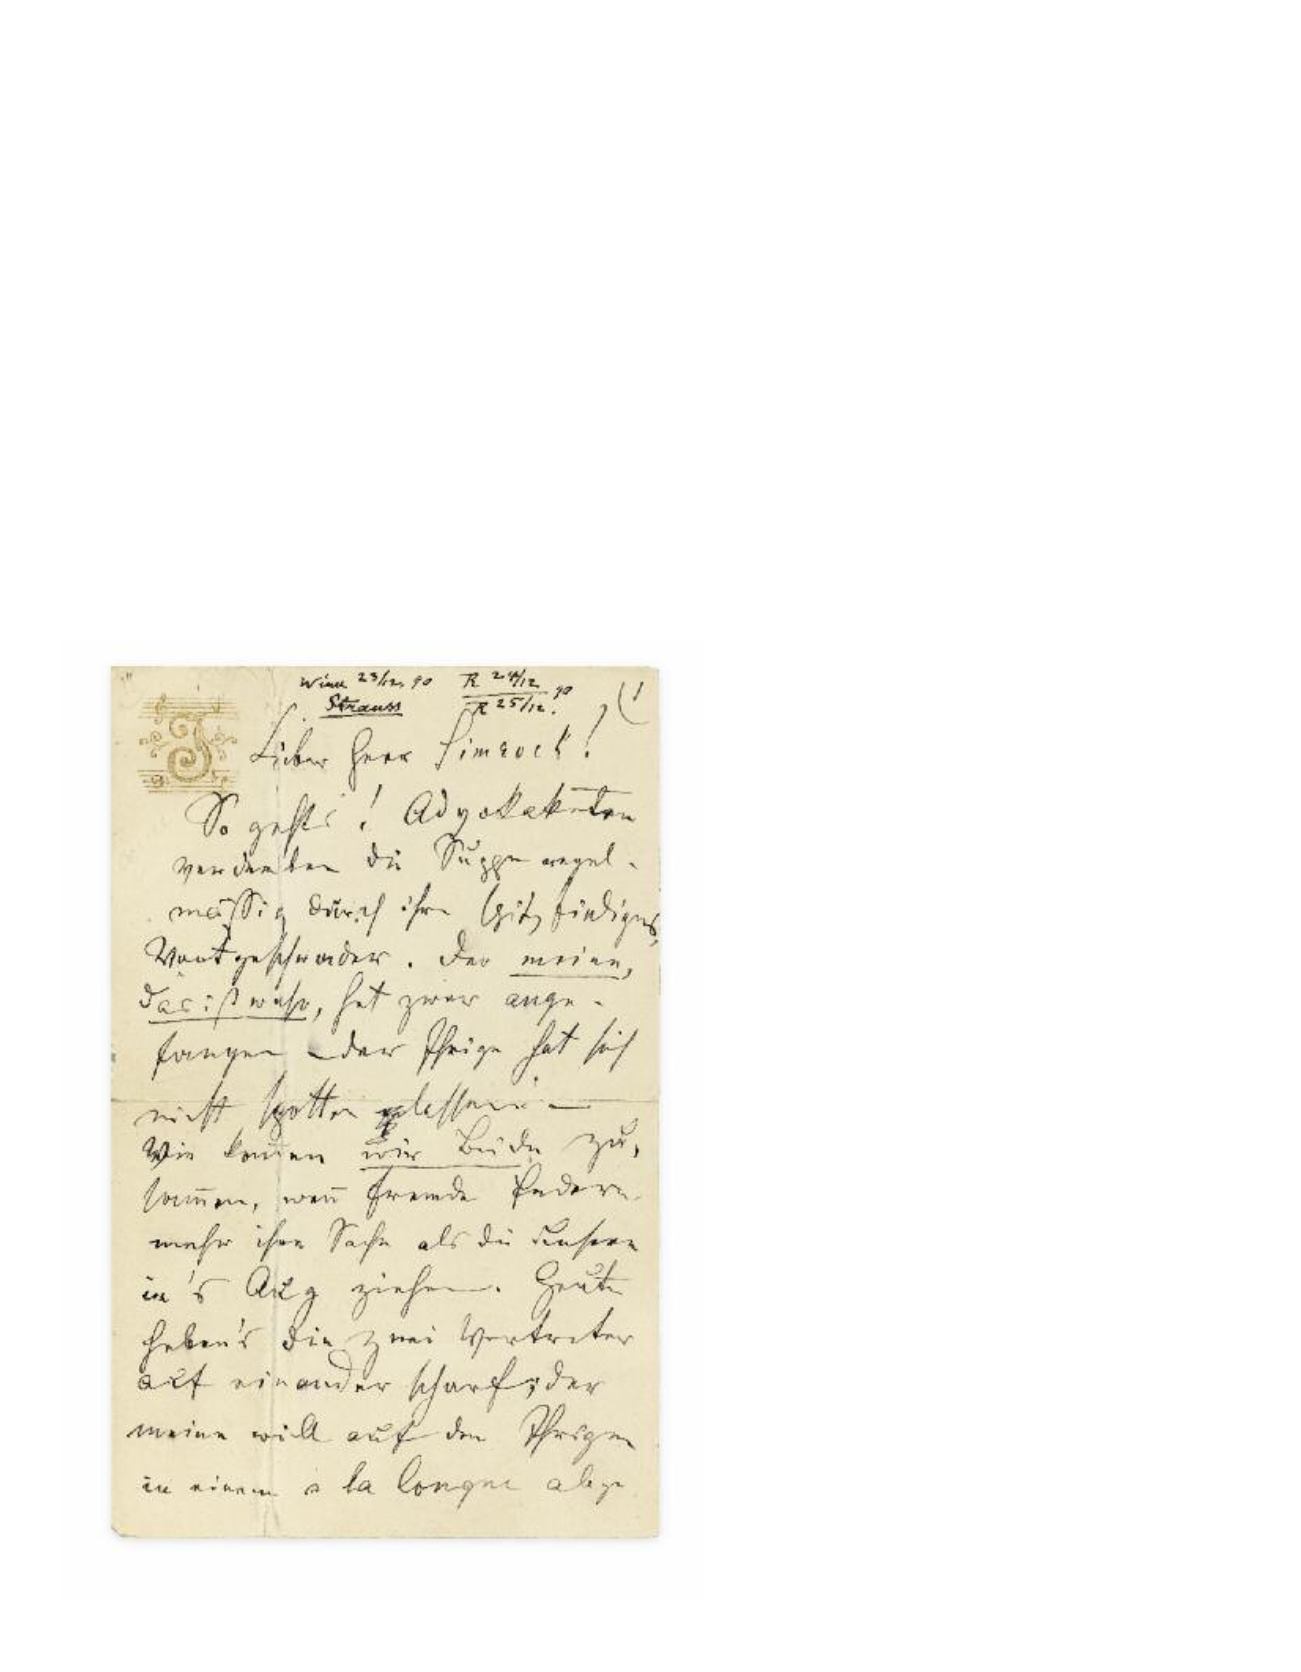 Wien 23/12. 90
Strauss
R 24/12 90
R 25/12.
1
J S
Lieber Herr Simrock!
So gehts! Advokakaten
verderben die Suppe regel-
mässig durch ihr spitzfindiges
Wortgeschwader. Der meine,
das ist wahr, hat zwar ange-
fangen – der Ihrige hat sich
nicht spotten lassen. –
Wie kom̅en wir Beide zu,
sam̅en, wen̅ fremde Federn
mehr ihre Sache als die unsere
in's Aug ziehen. Heute
haben's die zwei Vertreter
auf einander scharf; der
meine will auf den Ihrigen
in einem à la longue abge